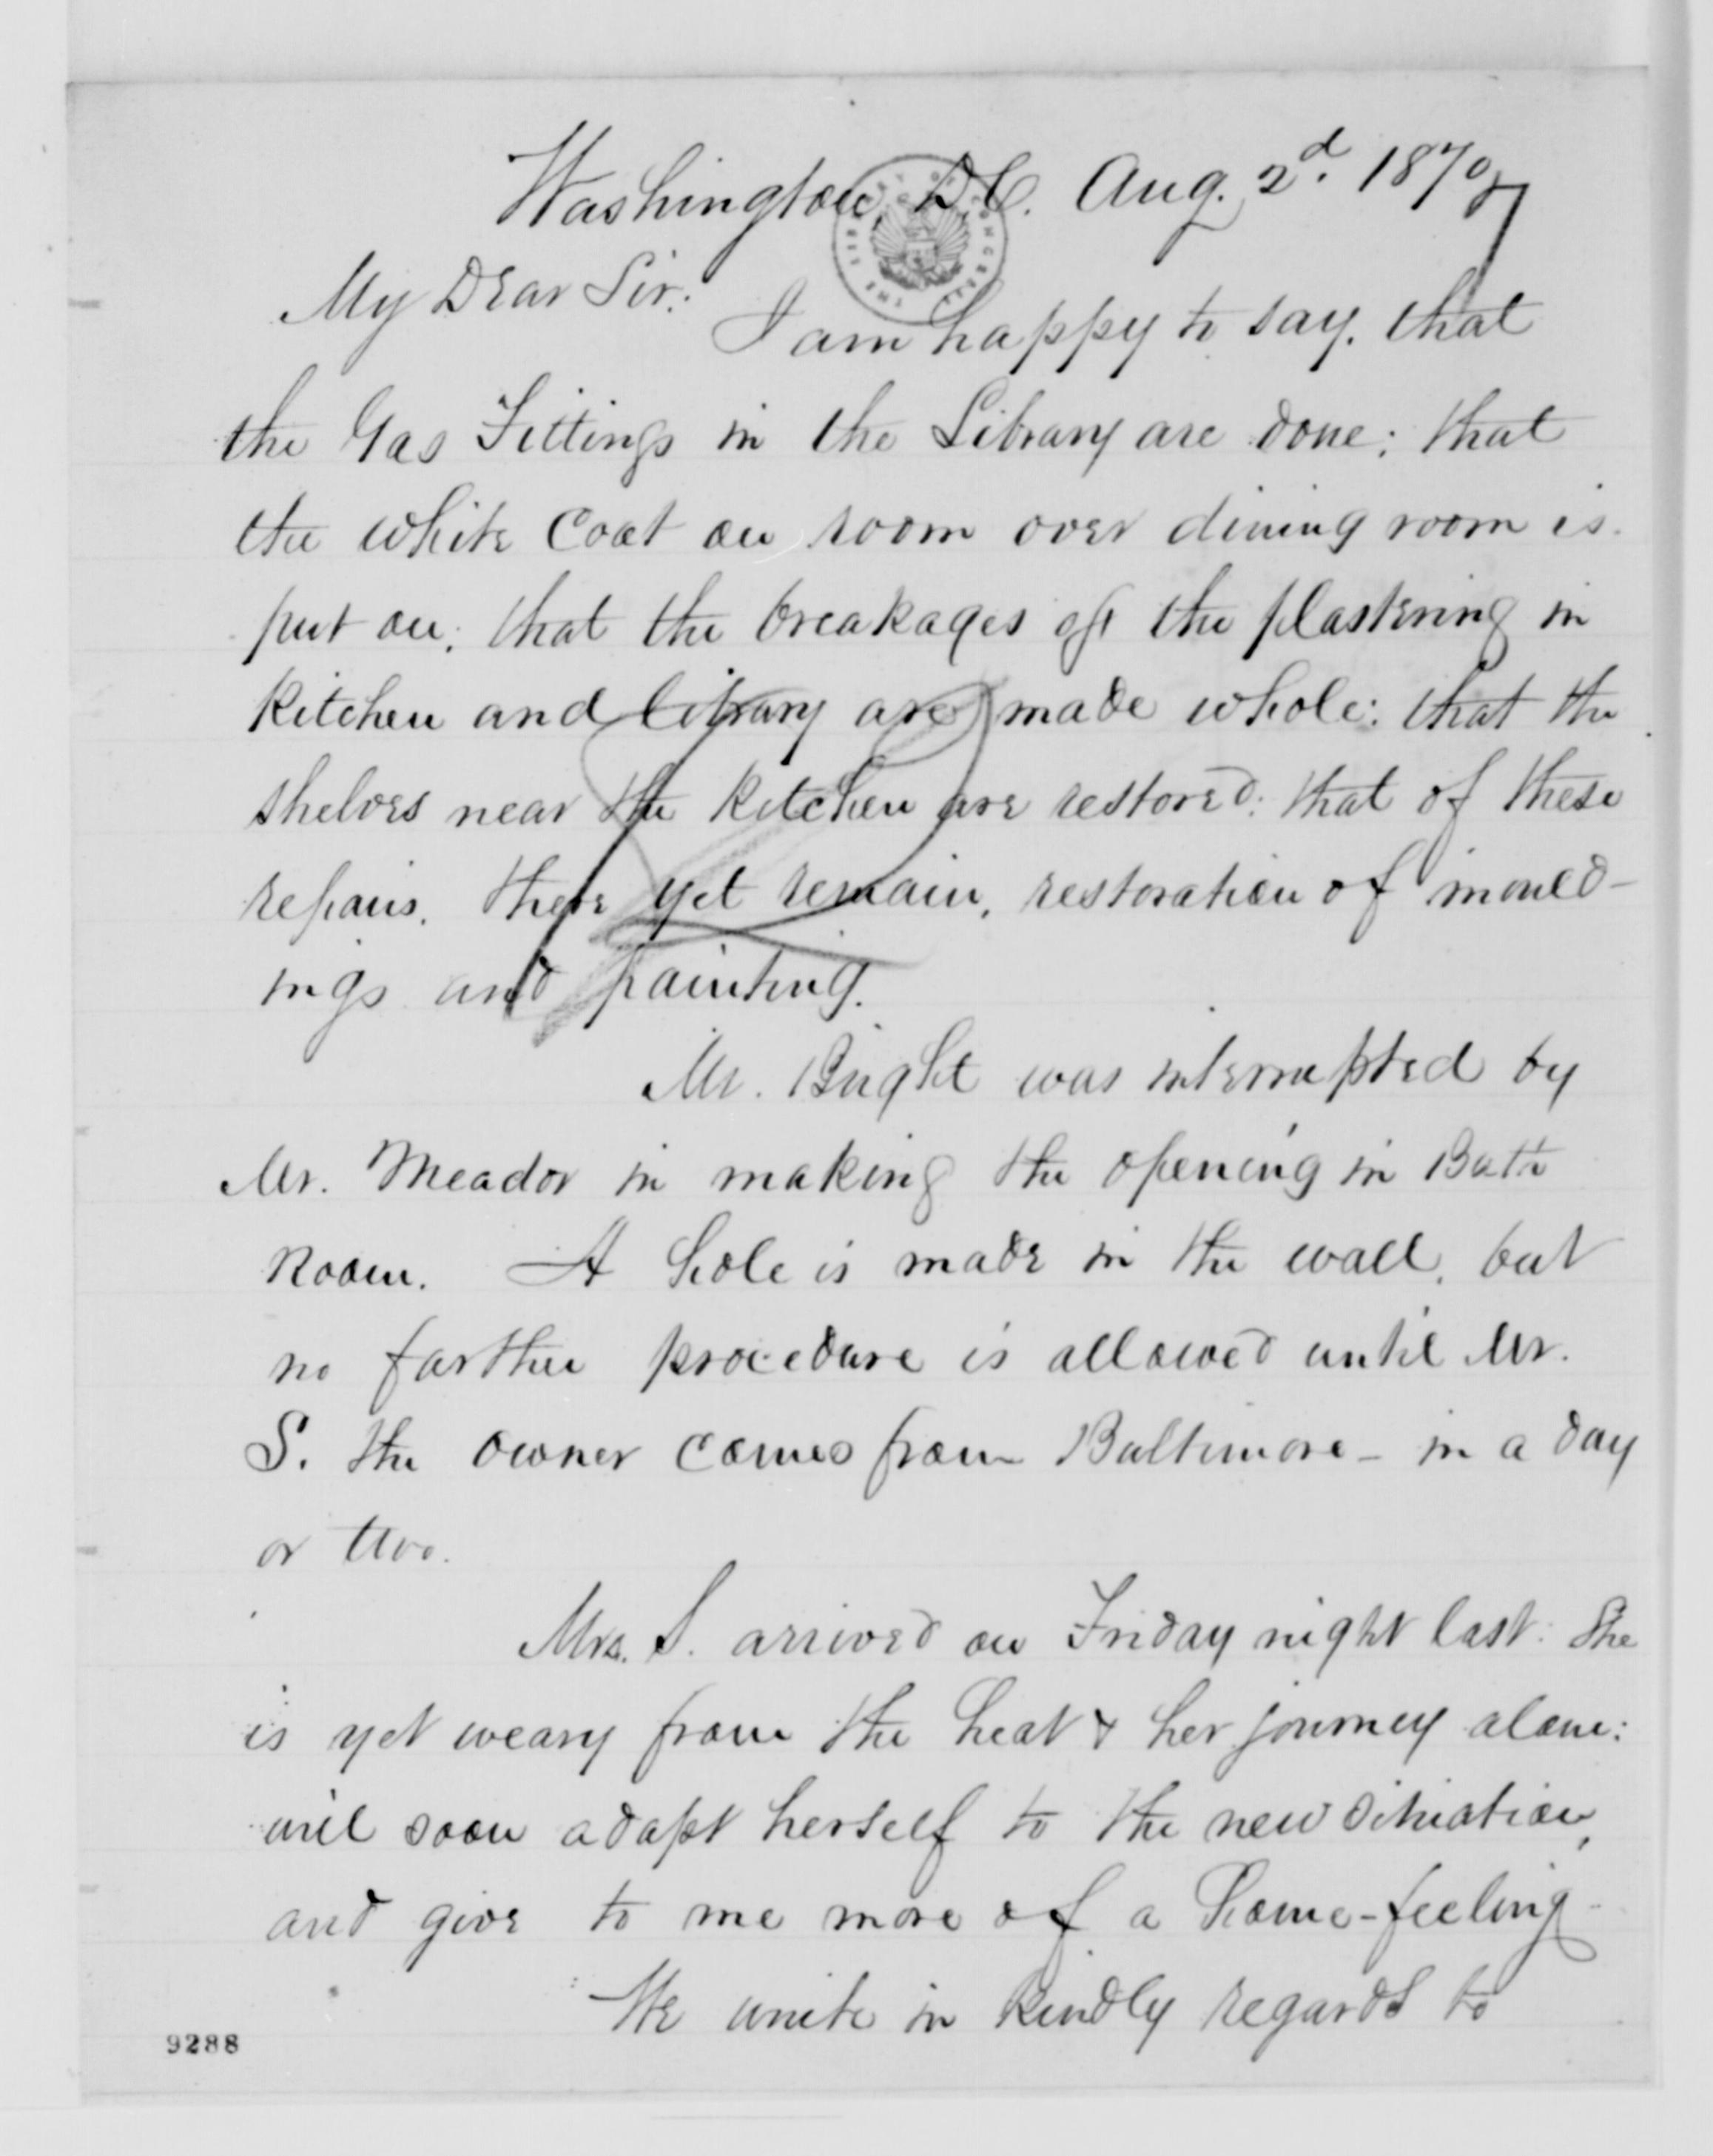 Washington, D.C. Aug. 2d. 1870
My Dear Sir:
I am happy to say, that
the Gas Fittings in the Library are done; that
the white coat on room over dining room is
put on; that the breakages of the plastering in
kitchen and library are made whole: that the
shelves near the kitchen are restored: that of these
repairs, there yet remain, restoration of mould-
ings and painting.
Mr. Bright was interrupted by
Mr. Meador in making the opening in Bath
Room. A hole is made in the wall, but
no farther procedure is allowed until Mr.
S. the owner comes from Baltimore - in a day
or two.
Mrs. S. arrived on Friday night last: She
is yet weary from the heat & her journey alone:
will soon adapt herself to the new situation,
and give to me more of a home-feeling.
We unite in kindly regards to
9288
THE LIBRARY OF CONGRESS